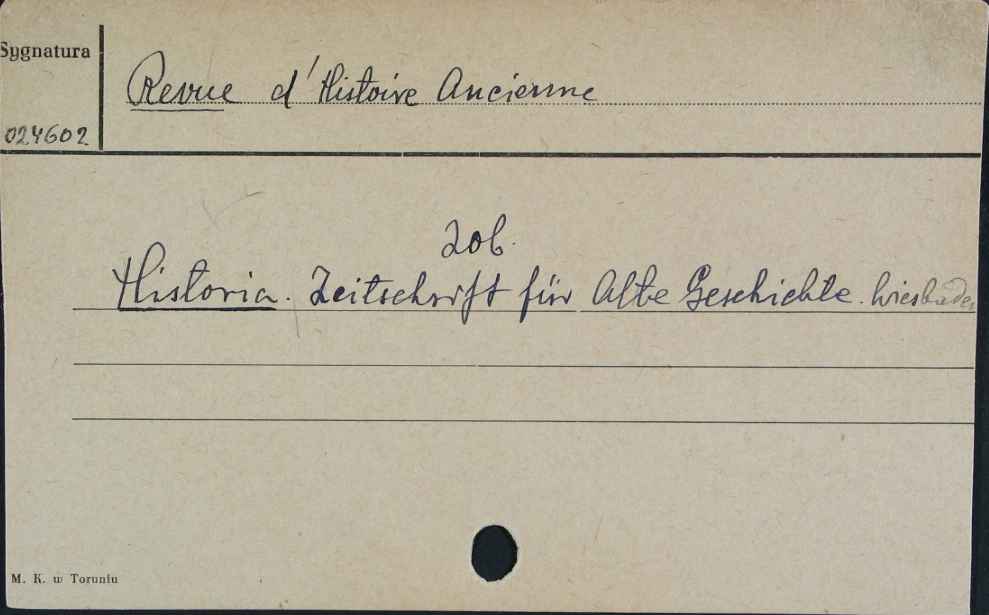 Sygnatura
Revue d'Histoire Ancienne
024602
Zob.
Historia. Zeitschrift für Alte Geschichte. Wiesbaden
M. K. w Toruniu